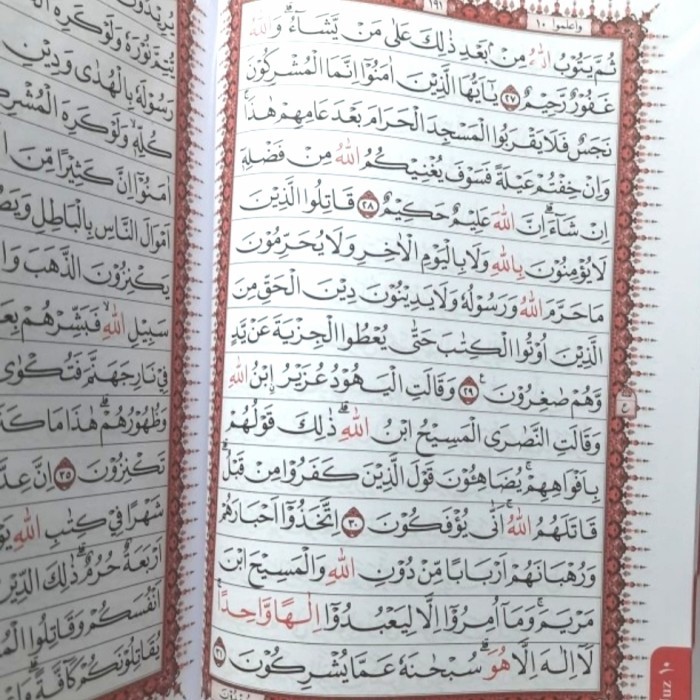 واعلموا ١٠
١٩١
ثُمَّ يَتُوْبُ اللّٰهُ مِنْۢ بَعْدِ ذٰلِكَ عَلٰى مَنْ يَّشَآءُ ؕ وَاللّٰهُ
غَفُوْرٌ رَّحِيْمٌ ﴿۲۷﴾ يٰۤاَيُّهَا الَّذِيْنَ اٰمَنُوْۤا اِنَّمَا الْمُشْرِكُوْنَ
نَجَسٌ فَلَا يَقْرَبُوا الْمَسْجِدَ الْحَرَامَ بَعْدَ عَامِهِمْ هٰذَا ۚ
وَاِنْ خِفْتُمْ عَيْلَةً فَسَوْفَ يُغْنِيْكُمُ اللّٰهُ مِنْ فَضْلِهٖۤ
اِنْ شَآءَ ؕ اِنَّ اللّٰهَ عَلِيْمٌ حَكِيْمٌ ﴿۲۸﴾ قَاتِلُوا الَّذِيْنَ
لَا يُؤْمِنُوْنَ بِاللّٰهِ وَلَا بِالْيَوْمِ الْاٰخِرِ وَلَا يُحَرِّمُوْنَ
مَا حَرَّمَ اللّٰهُ وَرَسُوْلُهٗ وَلَا يَدِيْنُوْنَ دِيْنَ الْحَقِّ مِنَ
الَّذِيْنَ اُوْتُوا الْكِتٰبَ حَتّٰى يُعْطُوا الْجِزْيَةَ عَنْ يَّدٍ
وَّهُمْ صٰغِرُوْنَ ﴿۲۹﴾ وَقَالَتِ الْيَهُوْدُ عُزَيْرُ ۨابْنُ اللّٰهِ
وَقَالَتِ النَّصٰرَى الْمَسِيْحُ ابْنُ اللّٰهِ ؕ ذٰلِكَ قَوْلُهُمْ
بِاَفْوَاهِهِمْ ۚ يُضَاهِئُوْنَ قَوْلَ الَّذِيْنَ كَفَرُوْا مِنْ قَبْلُ ؕ
قَاتَلَهُمُ اللّٰهُ ۚ اَنّٰى يُؤْفَكُوْنَ ﴿۳۰﴾ اِتَّخَذُوْۤا اَحْبَارَهُمْ
وَرُهْبَانَهُمْ اَرْبَابًا مِّنْ دُوْنِ اللّٰهِ وَالْمَسِيْحَ ابْنَ
مَرْيَمَ ۚ وَمَاۤ اُمِرُوْۤا اِلَّا لِيَعْبُدُوْۤا اِلٰـهًا وَّاحِدًا ۚ
لَاۤ اِلٰهَ اِلَّا هُوَ ؕ سُبْحٰنَهٗ عَمَّا يُشْرِكُوْنَ ﴿۳۱﴾
١٠
يُّرِيْدُوْنَ
يُّتِمَّ نُوْرَهٗ وَلَوْ كَرِهَ
رَسُوْلَهٗ بِالْهُدٰى وَدِيْنِ
كُلِّهٖ ۙ وَلَوْ كَرِهَ الْمُشْرِكُ
اٰمَنُوْۤا اِنَّ كَثِيْرًا مِّنَ
اَمْوَالَ النَّاسِ بِالْبَاطِلِ وَيَصُ
يَكْنِزُوْنَ الذَّهَبَ وَا
سَبِيْلِ اللّٰهِ ۙ فَبَشِّرْهُمْ بِعَ
فِيْ نَارِ جَهَنَّمَ فَتُكْوٰى
وَظُهُوْرُهُمْ ؕ هٰذَا مَا كَنَ
تَكْنِزُوْنَ ﴿۳۵﴾ اِنَّ عِدَّ
شَهْرًا فِيْ كِتٰبِ اللّٰهِ يَوْ
اَرْبَعَةٌ حُرُمٌ ؕ ذٰلِكَ الدِّيْنُ
اَنْفُسَكُمْ وَقَاتِلُوا الْمُ
يُقَاتِلُوْنَكُمْ كَآفَّةً ؕ وَاعْ